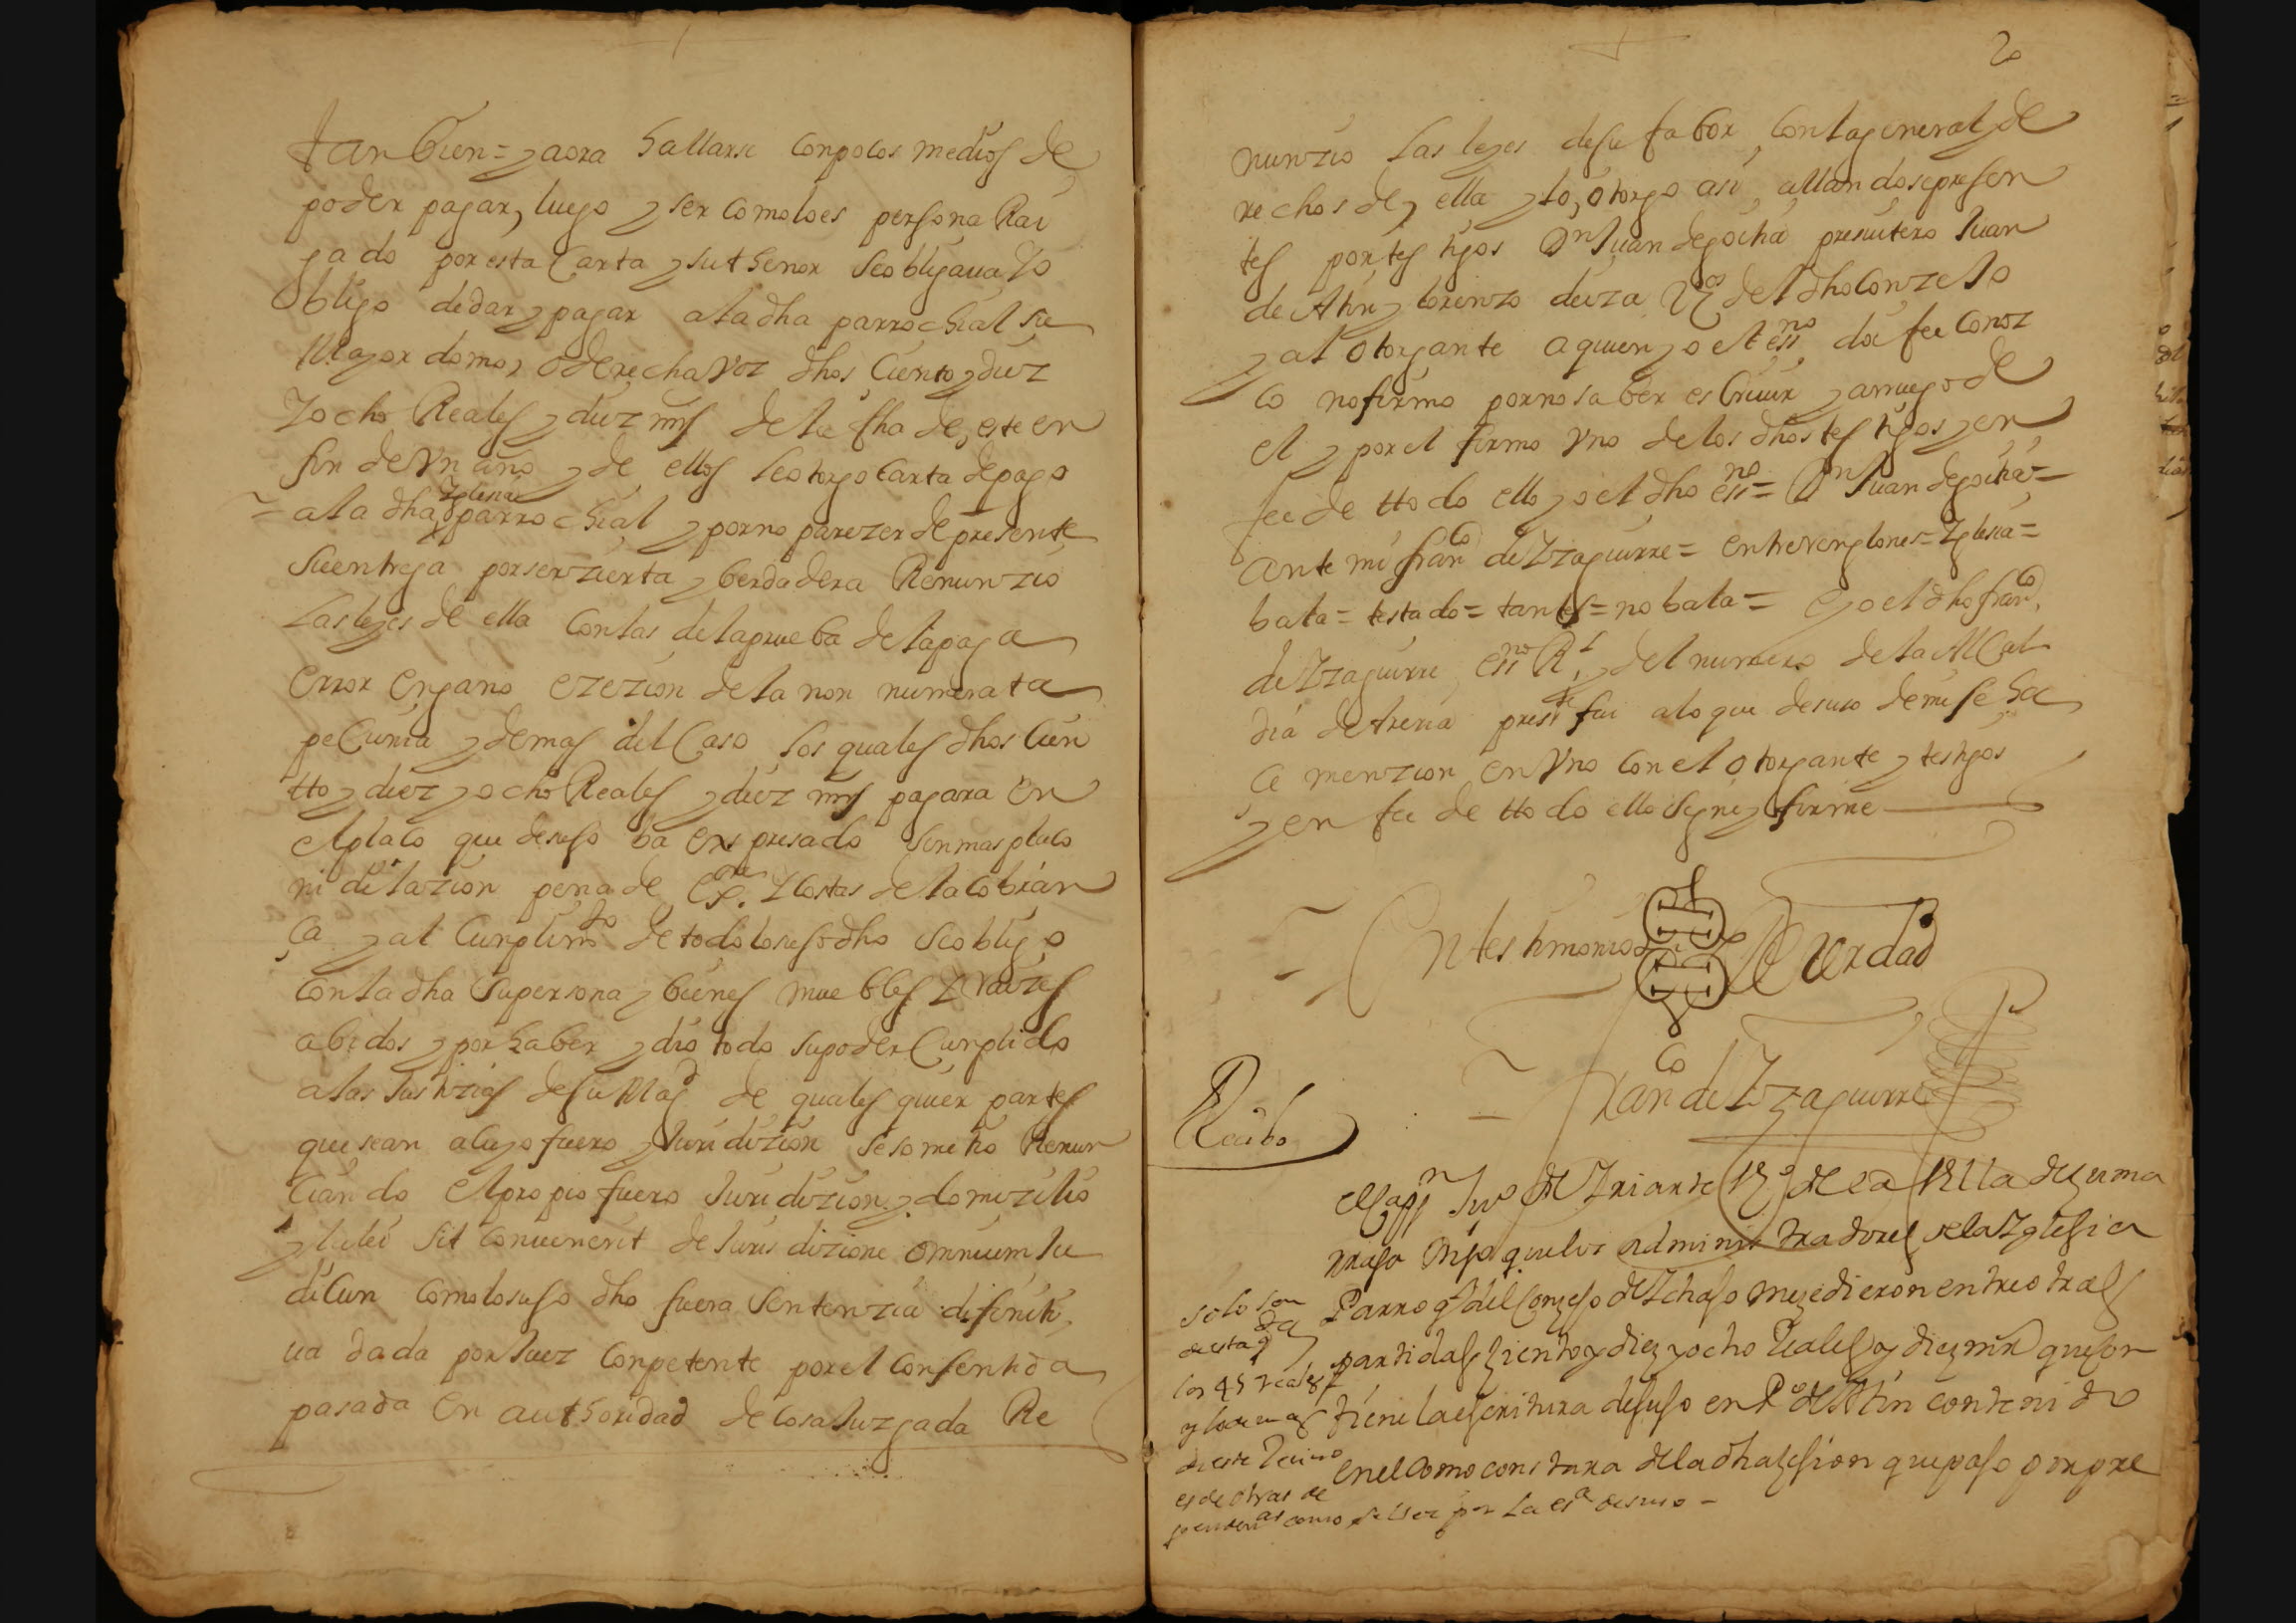 tanbien = y aora hallarse con pocos medios de
poder pagar, luego y ser como lo es persona Rai
gado por esta Carta y su thenor se obligaua Yo
Obligo de dar y pagar a la dha parrochial su
Mayordomo, o derecha voz dhos Ciento y diez
Y ocho Reales y diez mrs de la fha de este en
fin de Vn año y de ellos le otorgo carta de pago
Iglesia
= a la dha parrochial y por no parezer de presente
su entrega por ser zierta y berdadera Renunzio
Las leyes de ella con las de la prueba de la paga
error engano ezezion de la non numerata
peCunia y demas del Caso los quales dhos Cien
tto y diez y ocho Reales y diez mrs pagara en
el plaço que de suso ba expresado sin mas plaço
ni dilazion pena de exon. Y costas de la cobran
ça y al Cunplimto de todo lo suso dho se obligo
con la dha su persona y bienes muebles Y raizes
abidos y por haber y dio todo su poder Cunplido
a las Justizias de su Magd de quales quier partes
que sean a cuyo fuero y Juridizion se sometio Renun
çiando el propio fuero Juridizion y domizilio
y la lei sit conuenerit de Jurisdizione omnium Ju
diCun como lo suso dho fuera sentenzia difiniti
ua dada por Juez conpetente por el consentida
pasada en authoridad de cosa Juzgada Re
20
nunzio Las leyes de su fabor con la general de
rechos de ella y lo otorgo asi, allandose presen
tes por testigos Dn Juan de goiha presuitero Juan
de Atin y lorenzo deiza Vos del dho Conzejo
y al otorgante a quien yo el essno doi fee conoz
co no firmo por no saber escriuir y a rruego de
el y por el firmo vno de los dhos testigos y en
fee de ttodo ello yo el dho essno = Dn Juan de goiha =
Ante mi franco de Yzaguirre = entrerenglones = Iglesia =
bala = testado = tantes = no bala = E yo el dho franco
de Yzaguirre essno Rl, y del numero de la AlCal
dia de treria preste fui a lo que de suso de mi se ha
Ce menzion en vno con el otorgante y testigos
y en fee de ttodo ello signe y firme
En testimonio de Verdad
Franco de Yzaguirre
Recibo
el Capn Juo de Yriarte vzo de la villa de zuma
rraga digo que los administradores de la Yglesia
Parroql del Conzejo de Ychaso me zedieron entre otras
partidas ziento y diez y ocho Reales y diez mrs que con
tiene la escritura de suso en Po de Atin contenido
en el como constara de la dha zesion que paso por pre
solo son
desta da
los 45 reales
y lo demas
de este Reciuo
es de otras de
pendenas como se ve por la esa de suso -